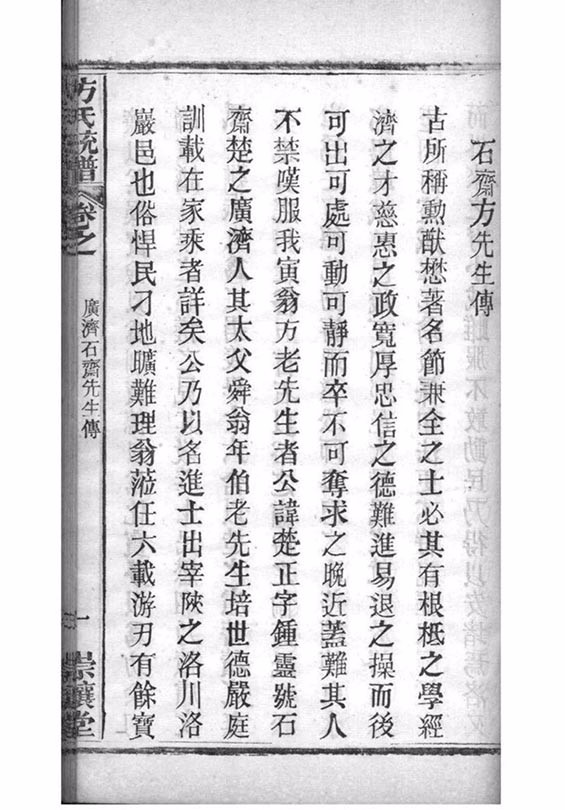 石齋方先生傳
古所稱勳猷懋著名節兼全之士必其有根柢之學經
濟之才慈惠之政寬厚忠信之德難進易退之操而後
可出可處可動可靜而卒不可奪求之晚近蓋難其人
不禁嘆服我寅翁方老先生者公諱楚正字鍾靈號石
齋楚之廣濟人其太父舜翁年伯老先生培世德嚴庭
訓載在家乘者詳矣公乃以名進士出宰陝之洛川洛
嚴邑也俗悍民刁地曠難理翁蒞任六載游刃有餘寶
方氏統譜
卷之
廣濟石齋先生傳
一
崇讓堂